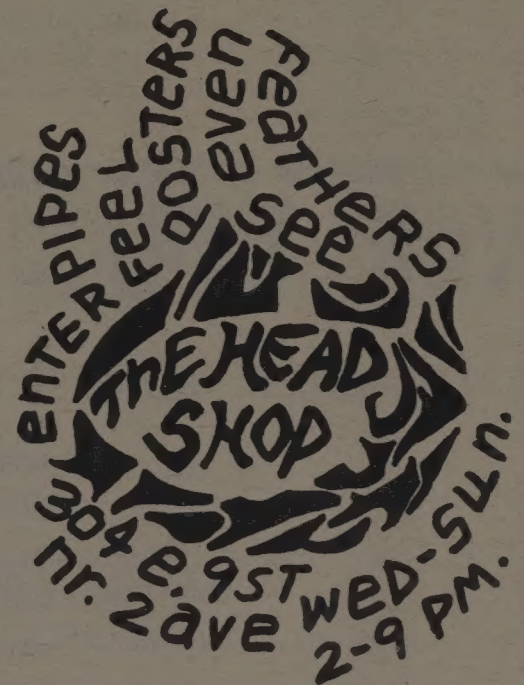 enTER
PIPeS
FeeL
POSTeRS
even
FeaTHeRS
See
ThE HEAD
SHOP
304 e. 9ST
nr. 2 ave
WeD-SUn.
2-9 PM.